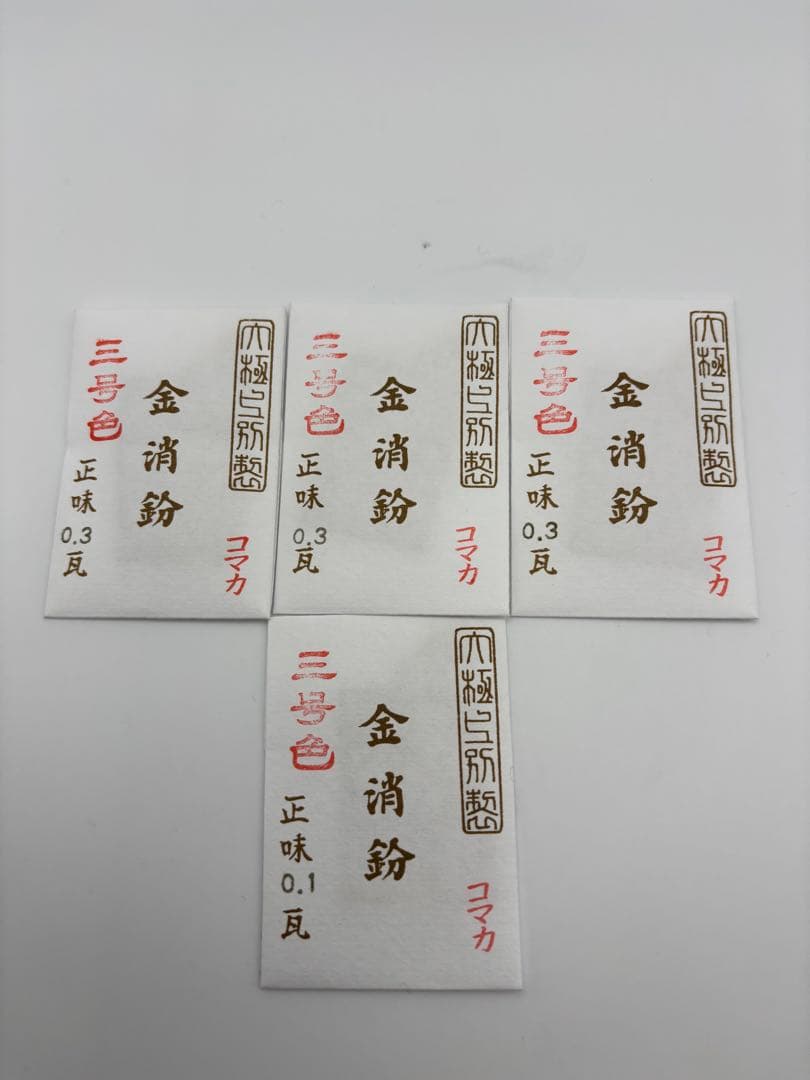 大極上別製
金消鈖
三号色
正味
0.3
瓦
コマカ
大極上別製
金消鈖
三号色
正味
0.3
瓦
コマカ
大極上別製
金消鈖
三号色
正味
0.3
瓦
コマカ
大極上別製
金消鈖
三号色
正味
0.1
瓦
コマカ